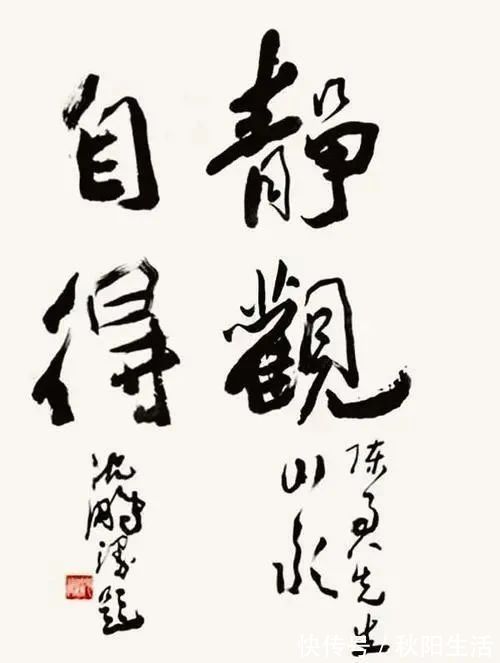 靜觀
陈先生
山水
自得
沈鵬题
快传号 / 秋阳生活